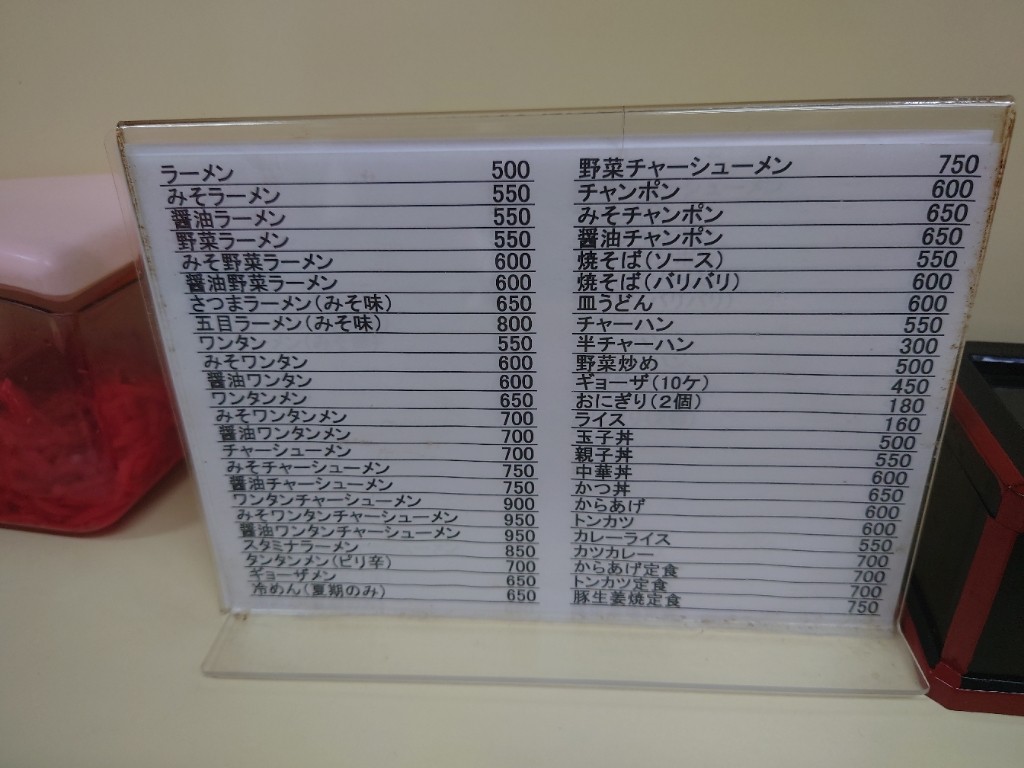 ラーメン 500
みそラーメン 550
醤油ラーメン 550
野菜ラーメン 550
みそ野菜ラーメン 600
醤油野菜ラーメン 600
さつまラーメン(みそ味) 650
五目ラーメン(みそ味) 800
ワンタン 550
みそワンタン 600
醤油ワンタン 600
ワンタンメン 650
みそワンタンメン 700
醤油ワンタンメン 700
チャーシューメン 700
みそチャーシューメン 750
醤油チャーシューメン 750
ワンタンチャーシューメン 900
みそワンタンチャーシューメン 950
醤油ワンタンチャーシューメン 950
スタミナラーメン 850
タンタンメン(ピリ辛) 700
ギョーザメン 650
冷めん(夏期のみ) 650
野菜チャーシューメン 750
チャンポン 600
みそチャンポン 650
醤油チャンポン 650
焼そば(ソース) 550
焼そば(バリバリ) 600
皿うどん 600
チャーハン 550
半チャーハン 300
野菜炒め 500
ギョーザ(10ケ) 450
おにぎり(2個) 180
ライス 160
玉子丼 500
親子丼 550
中華丼 600
かつ丼 650
からあげ 600
トンカツ 600
カレーライス 550
カツカレー 700
からあげ定食 700
トンカツ定食 700
豚生姜焼定食 750